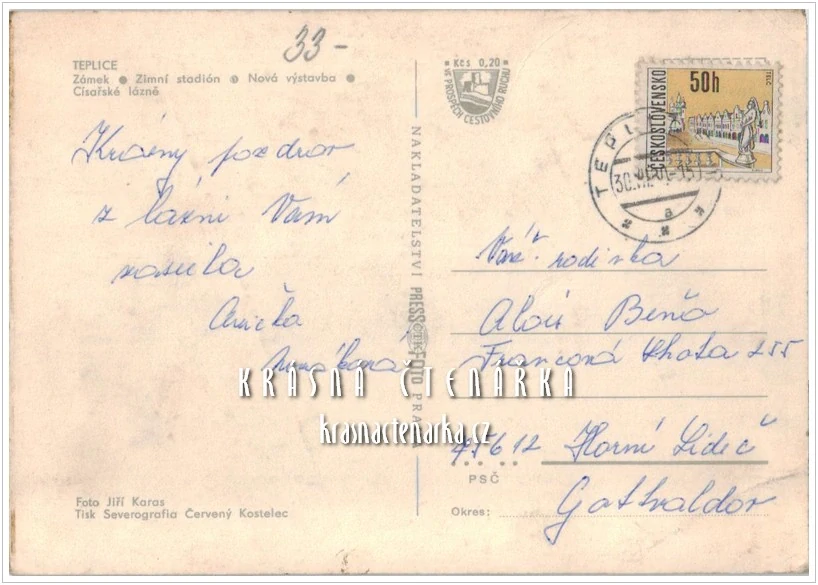 33-
TEPLICE
Zámek ● Zimní stadión ● Nová výstavba ●
Císařské lázně
Krásný pozdrav
z lázní Vám
zasílá
Anička
Foto Jiří Karas
Tisk Severografia Červený Kostelec
NAKLADATELSTVÍ PRESSFOTO PRAHA
Kčs 0,20
VE PROSPĚCH CESTOVNÍHO RUCHU
ČESKOSLOVENSKO
50h
TELČ
TEPL
30.VII.
a
Váž. rodinka
Alois Beňo
Francova Lhota 255
75612 Horní Lideč
PSČ
Gottwaldov
Okres:
KRÁSNÁ ČTENÁŘKA
krasnactenarka.cz